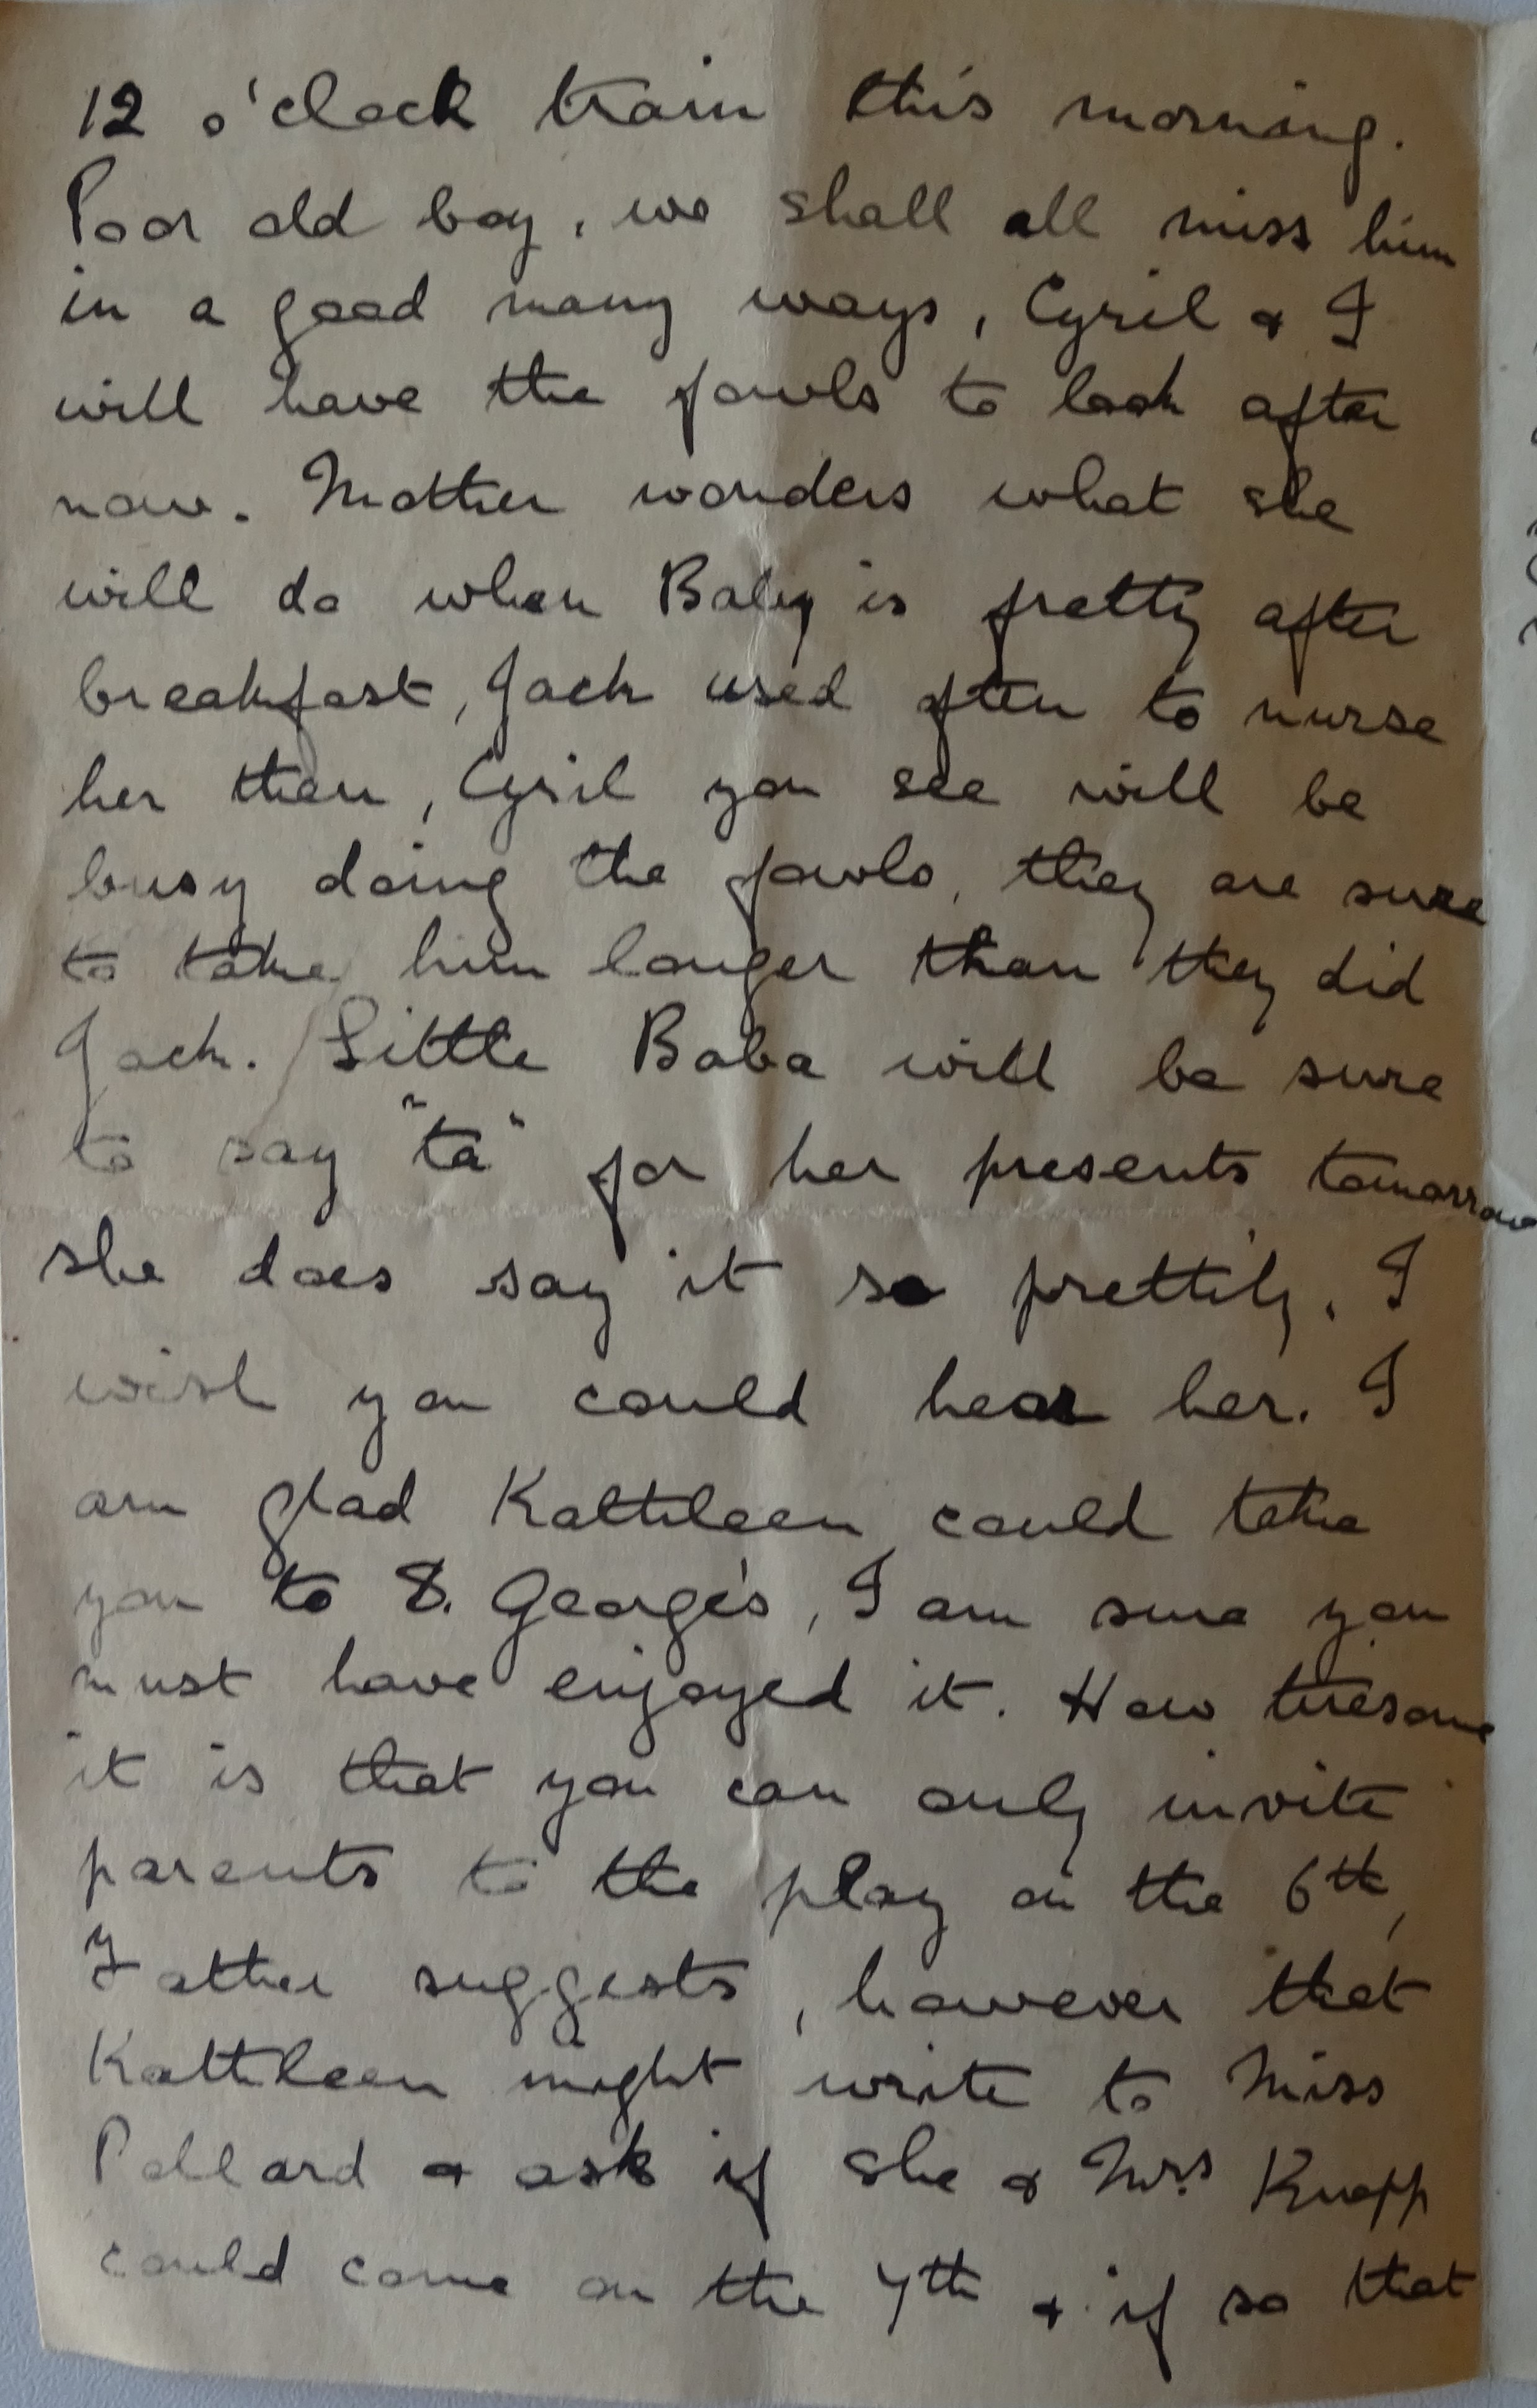 12 o'clock train this morning.
Poor old boy, we shall all miss him
in a good many ways, Cyril & I
will have the fowls to look after
now. Mother wonders what she
will do when Baby is fretty after
breakfast, Jack used often to nurse
her then, Cyril you see will be
busy doing the fowls, they are sure
to take him longer than they did
Jack. Little Baba will be sure
to say "ta" for her presents tomorrow
she does say it so prettily, I
wish you could hear her. I
am glad Kathleen could take
you to S. George's, I am sure you
must have enjoyed it. How tiresome
it is that you can only invite
parents to the play on the 6th,
Father suggests, however that
Kathleen might write to Miss
Pollard & ask if she & Mrs Knapp
could come on the 7th & if so that